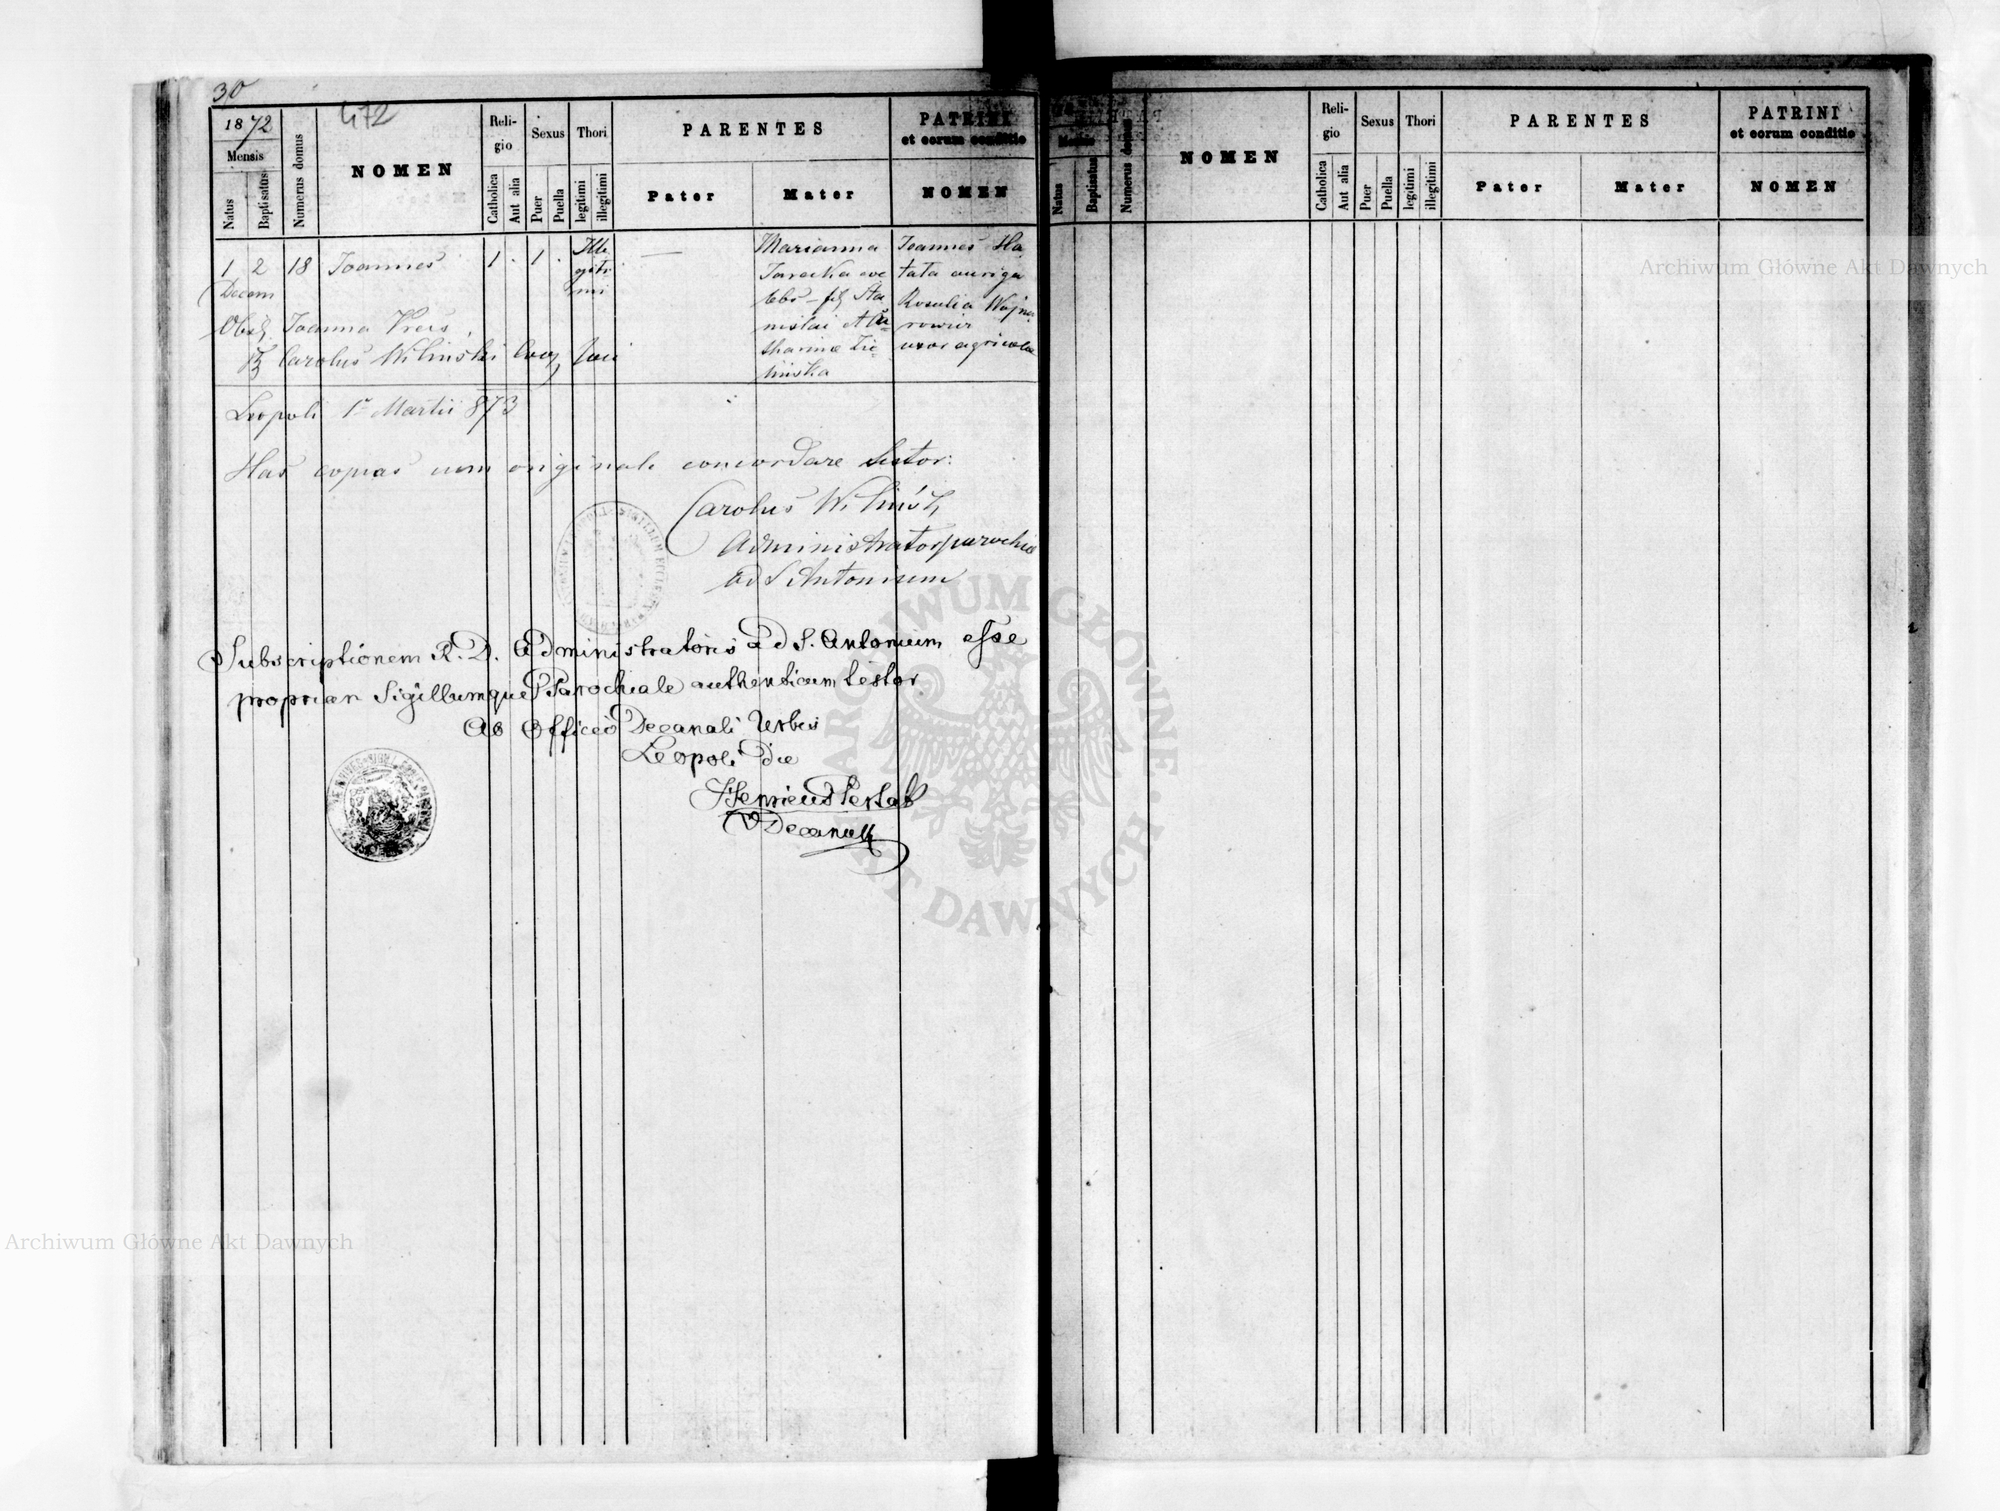 30
472
1872
Mensis
Natus
Baptisatus
Numerus domus
NOMEN
Religio
Catholica
Aut alia
Sexus
Puer
Puella
Thori
legitimi
illegitimi
PARENTES
Pater
Mater
PATRINI
et eorum conditio
NOMEN
1 2 18 Joannes 1 . 1 . Ille
giti
mi
Decem
—
Marianna
nislai
tharina
Joannes Ha
tata auriga
Rosalia Wojna
rowicz
uxor agricolae
Obst. Joanna
Carolus Wiliński Coop
Leopoli 1ma Martii 873
Has copias cum originale concordare testor:
Carolus Wiliński
Administrator parochiae
ad S Antonium
Subscriptionem R. D. Administratoris ad S. Antonium esse
propriam Sigillumque Parochiale authenticum testor
Ab Officio Decanali Urbis
Leopoli die
Henricus
VDecanus
Natus
Baptisatus
Numerus domus
NOMEN
Religio
Catholica
Aut alia
Sexus
Puer
Puella
Thori
legitimi
illegitimi
PARENTES
Pater
Mater
PATRINI
et eorum conditio
NOMEN
Archiwum Główne Akt Dawnych
ARCHIWUM GŁÓWNE AKT DAWNYCH
Archiwum Główne Akt Dawnych